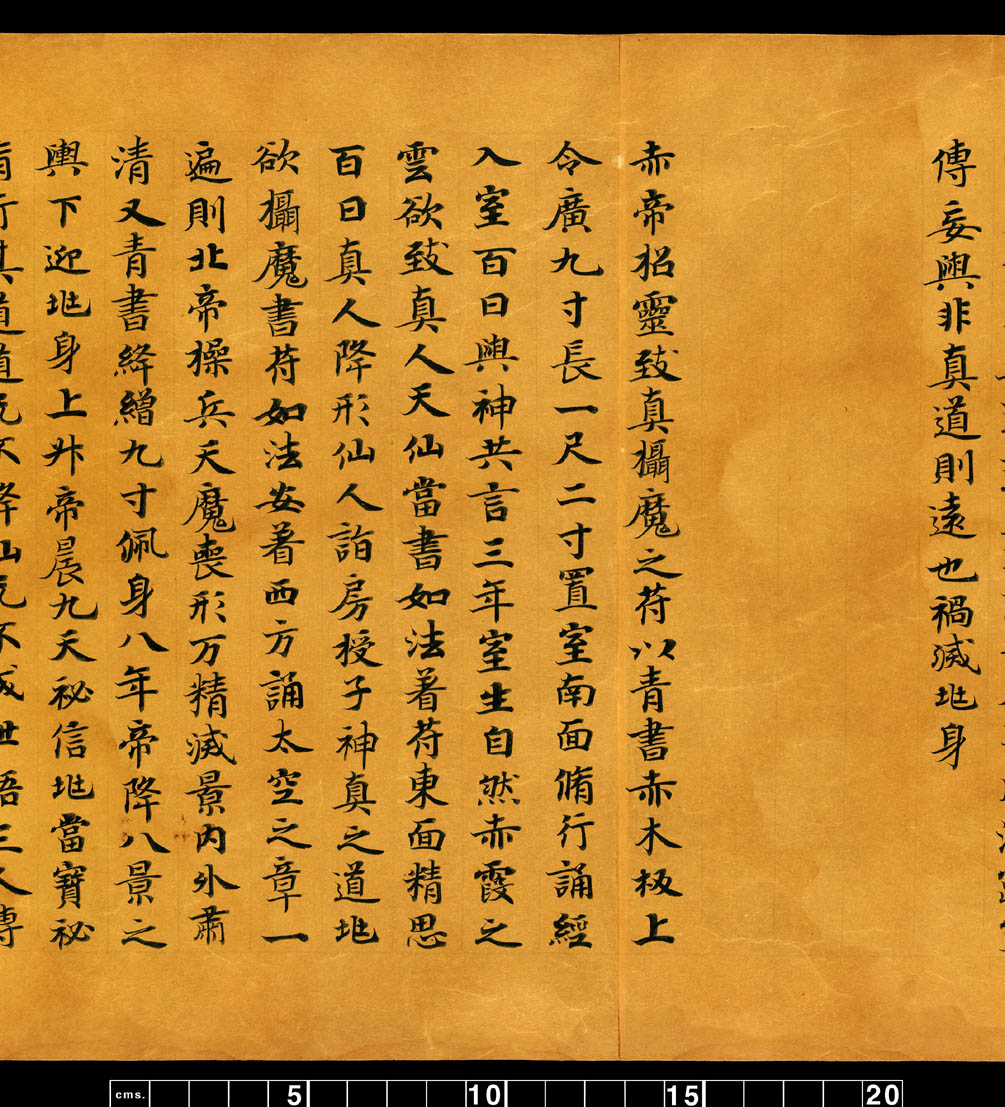 傳妄與非真道則遠也禍滅兆身
赤帝招靈致真攝魔之苻以青書赤木板上
令廣九寸長一尺二寸置室南面脩行誦經
入室百日與神共言三年室生自然赤霞之
雲欲致真人天仙當書如法著苻東面精思
百日真人降形仙人詣房授子神真之道兆
欲攝魔書苻如法安著西方誦太空之章一
遍則北帝操兵天魔喪形万精滅景內外肅
清又青書絳繒九寸佩身八年帝降八景之
輿下迎兆身上升帝晨九天祕信兆當寶祕
cms. 5 10 15 20